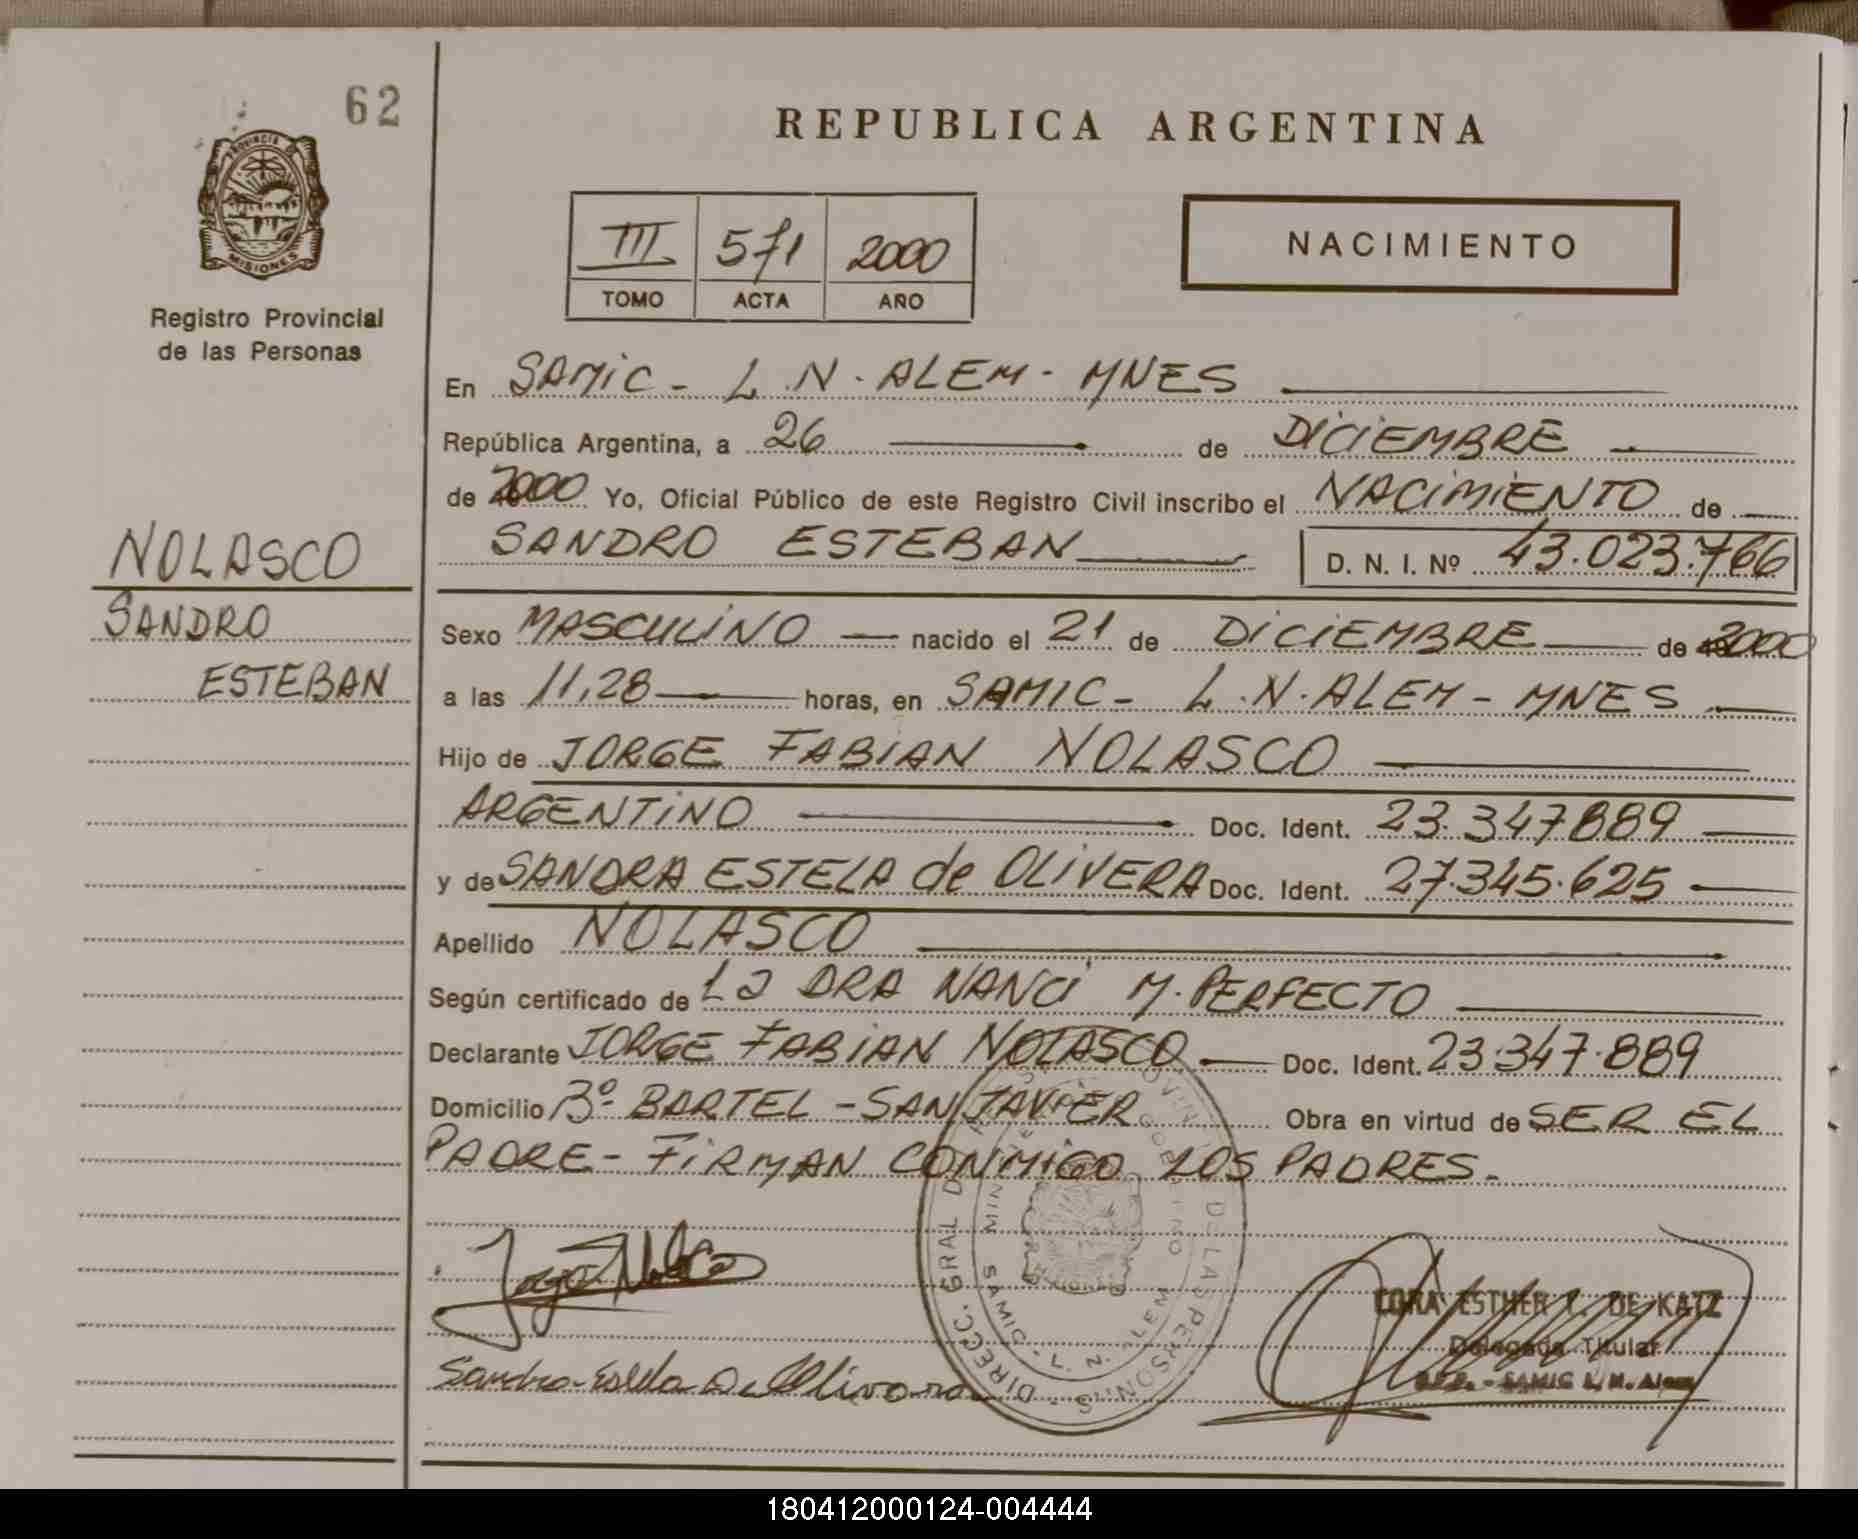 62
PROVINCIA DE
MISIONES
Registro Provincial
de las Personas
NOLASCO
SANDRO
ESTEBAN
REPUBLICA ARGENTINA
III 571 2000
TOMO ACTA AÑO
NACIMIENTO
En SAMIC - L.N. ALEM - MNES
República Argentina, a 26 de DICIEMBRE
de 2000 Yo, Oficial Público de este Registro Civil inscribo el NACIMIENTO de
SANDRO ESTEBAN D. N. I. Nº 43.023.766
Sexo MASCULINO nacido el 21 de DICIEMBRE de 2000
a las 11,28 horas, en SAMIC - L.N. ALEM - MNES
Hijo de JORGE FABIAN NOLASCO
ARGENTINO Doc. Ident. 23.347.889
y de SANDRA ESTELA de OLIVERA Doc. Ident. 27.345.625
Apellido NOLASCO
Según certificado de La DRA NANCI M. PERFECTO
Declarante JORGE FABIAN NOLASCO Doc. Ident. 23.347.889
Domicilio Bº BARTEL - SAN JAVIER Obra en virtud de SER EL
PADRE - FIRMAN CONMIGO LOS PADRES.
CORA ESTHER DE KATZ
Delegada Titular
SAMIC L. N. Alem
DIRECC. GRAL DE LAS PERSONAS
SAMIC - L. N. ALEM
180412000124-004444